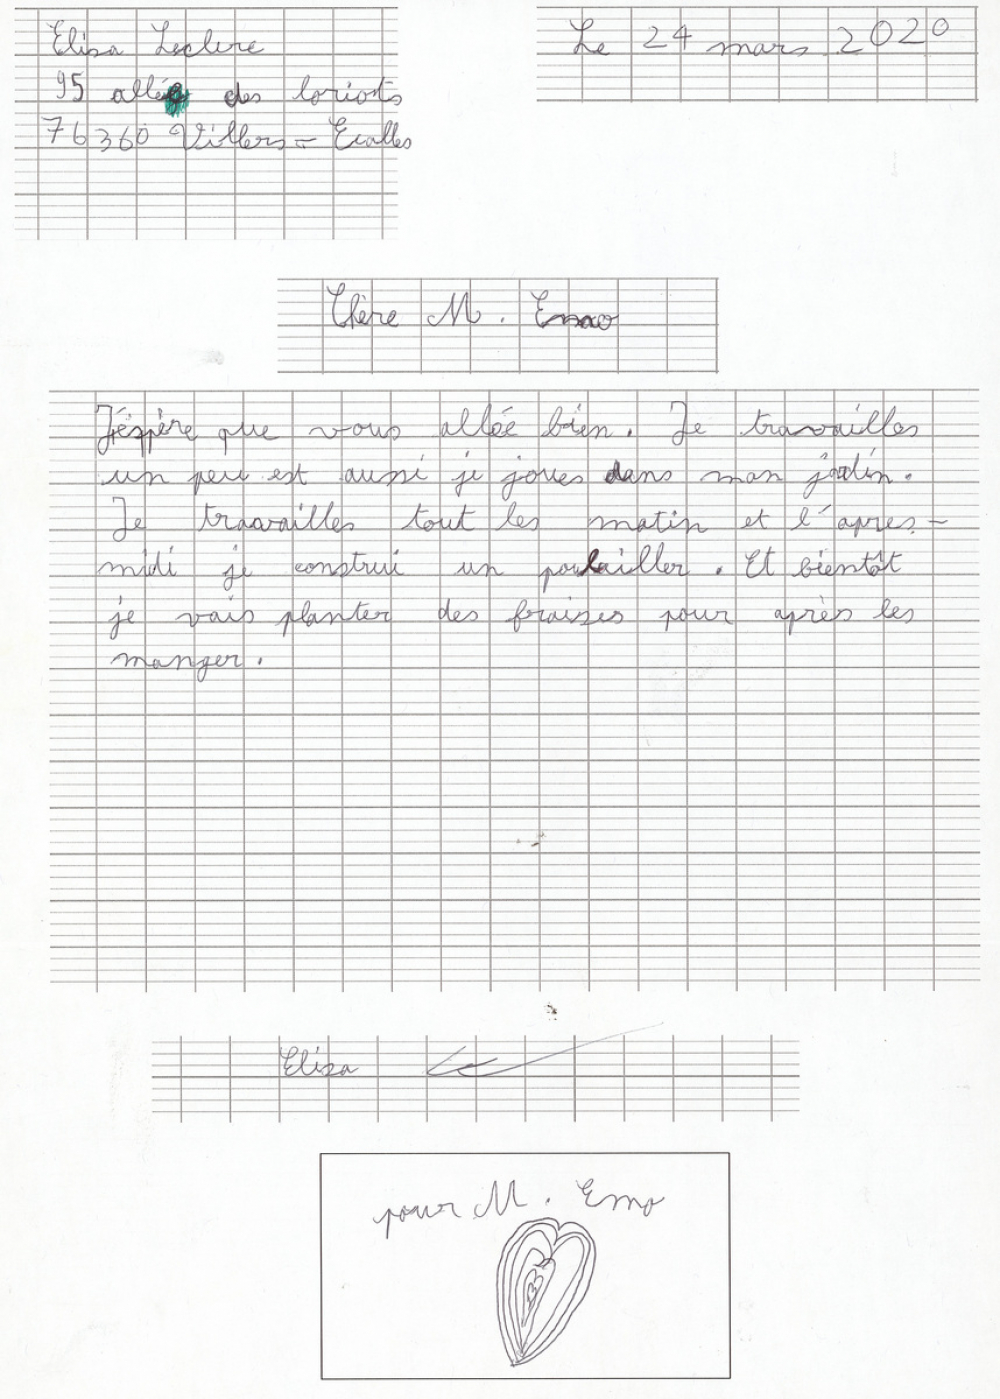 Elisa Leclere
Le 24 mars 2020
95 allée des loriots
76360 Villers-Ecalles
Chère M. Emo
J'éspère que vous allée bien. Je travailles
un peu est aussi je joues dans mon jardin.
Je travailles tout les matin et l'apres-
midi je construi un poulailler. Et bientôt
je vais planter des fraises pour après les
manger.
Elisa
pour M. Emo